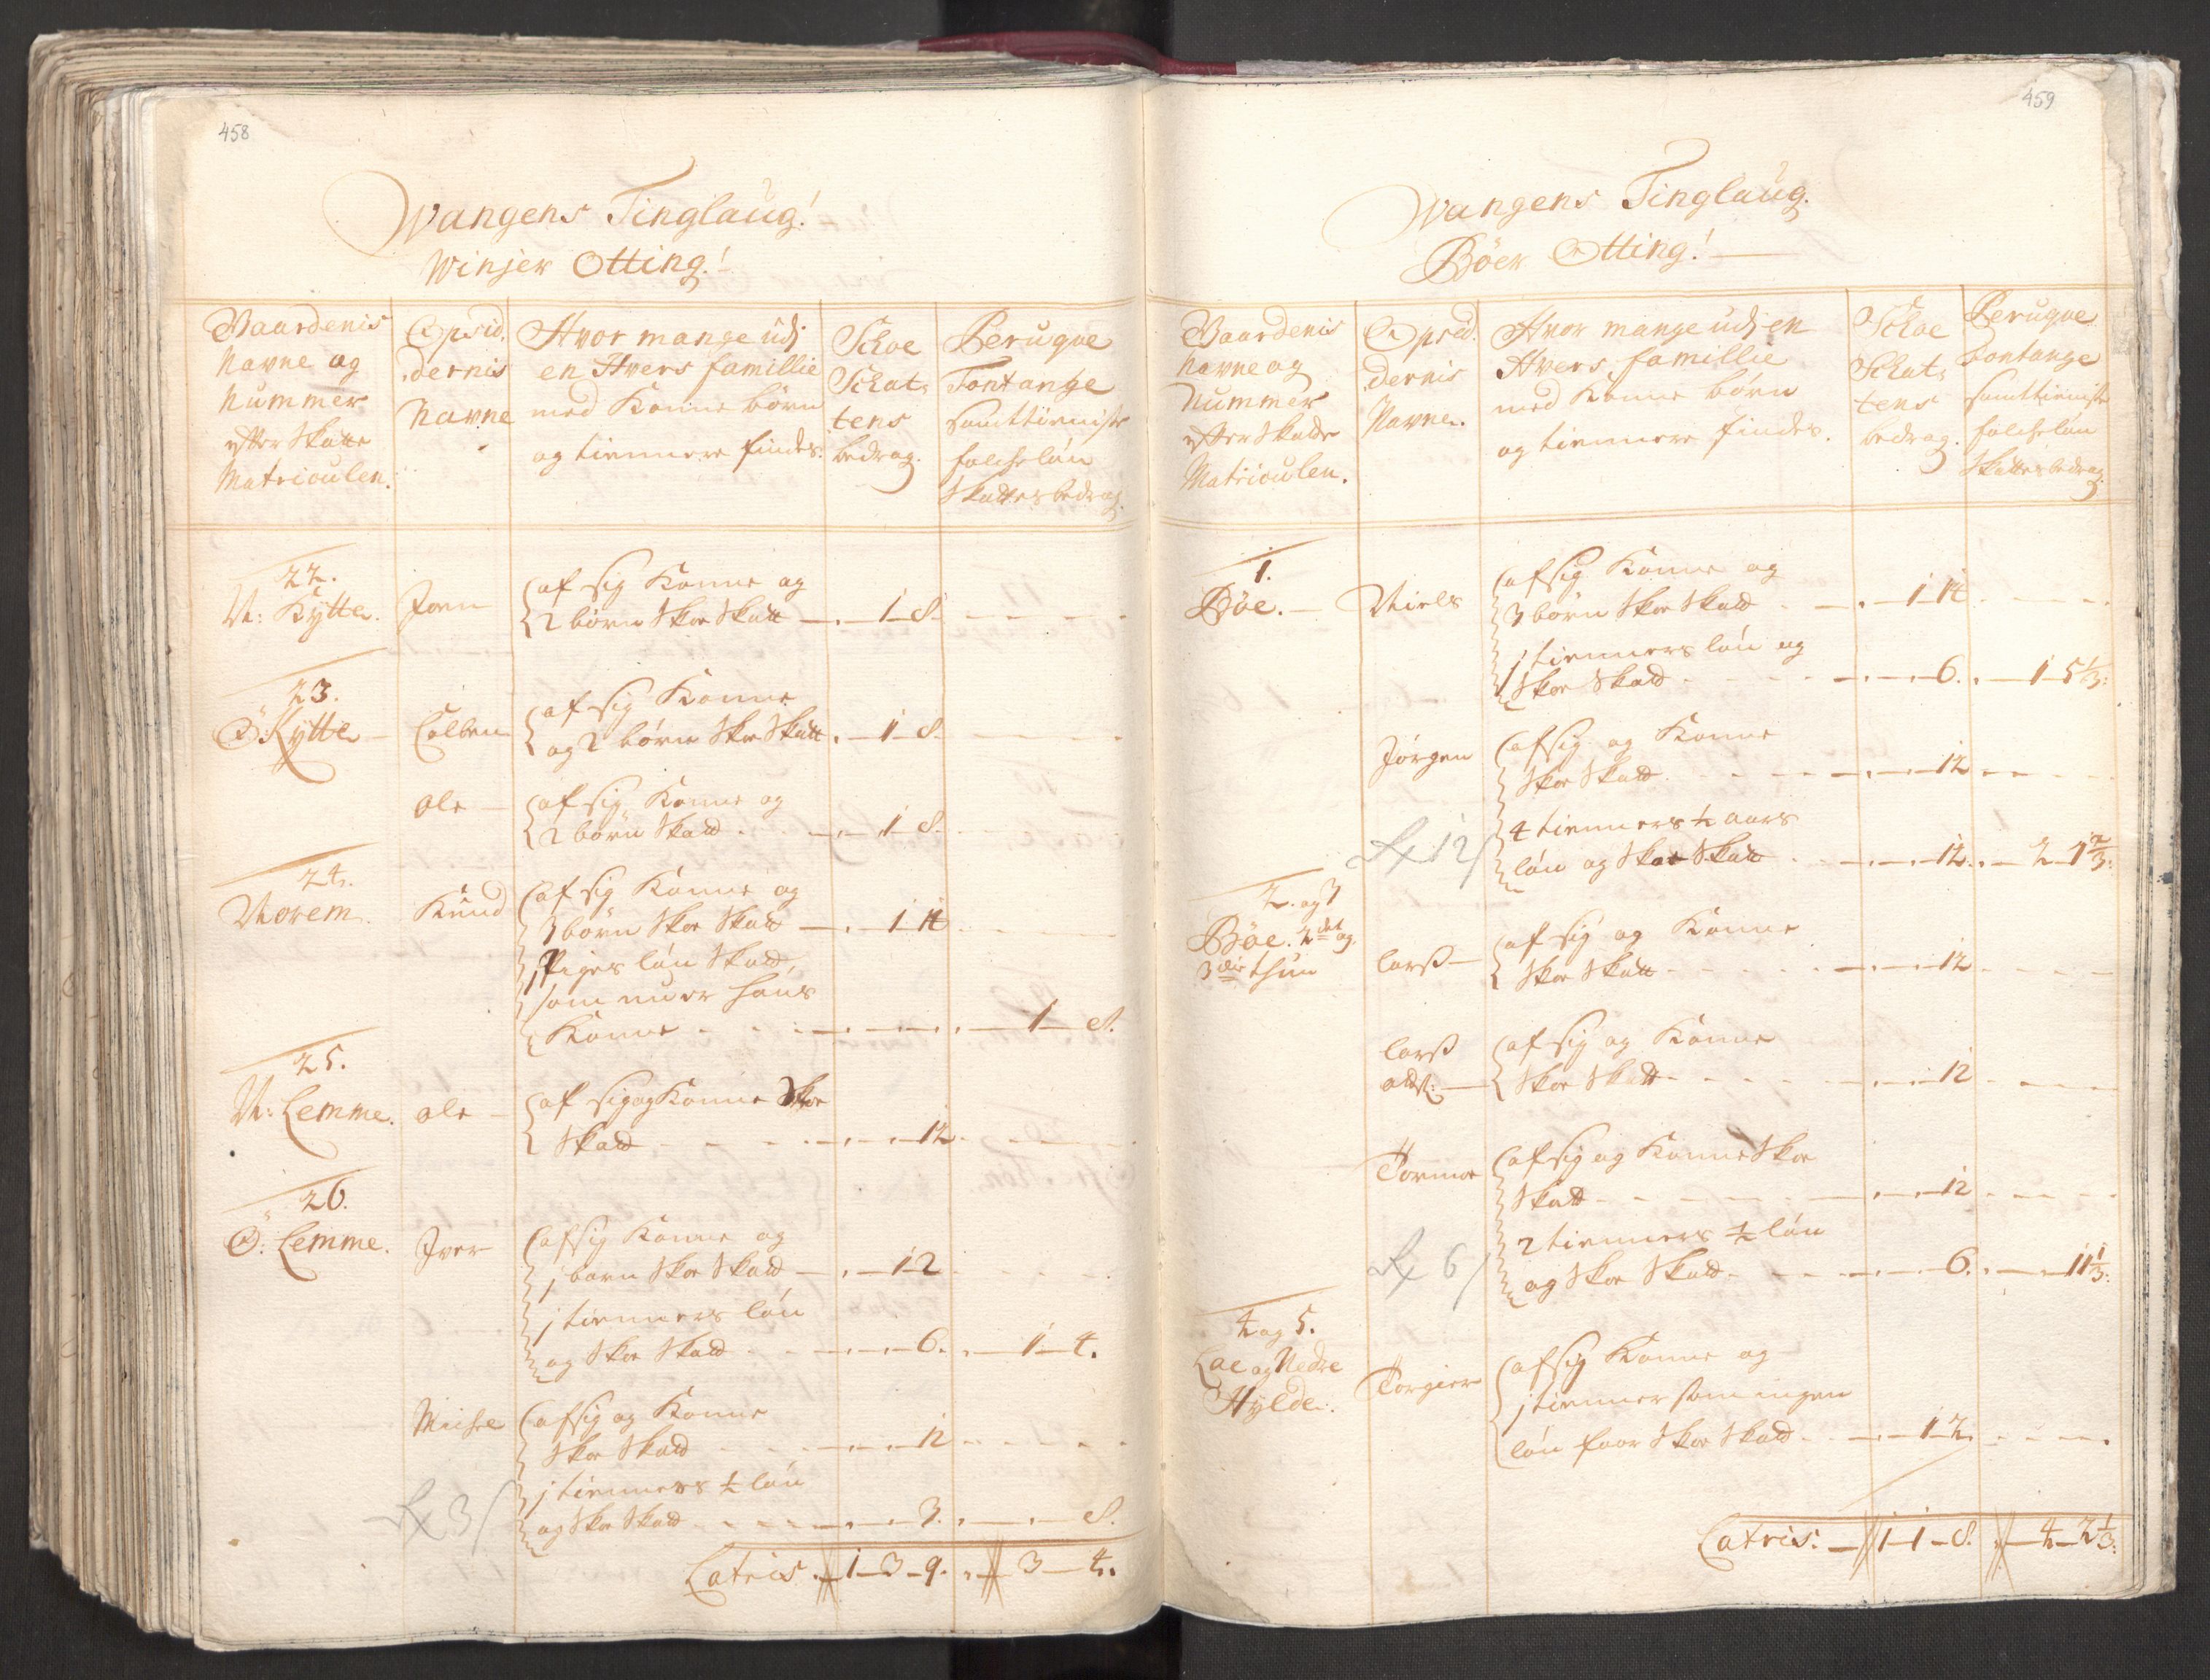 458
Wangens Tinglaug!
Winjer Otting!
Gaardenis
Navne og
Nummer
efter Skatte
Matriculen.
Opsid.
dernis
Navne
Hvor mange udj
en Hvers famillie
med Konne börn
og tiennere findes.
Schoe
Schat-
tens
bedrag.
Peruqve
Fontange
samt tieniste
folckelön
Skattes bedrag.
22.
N: Kytte. Joen
af sig Konne og
2 börn Skoe Skatt 1-8.
23.
Ö: Kytte Colben
af sig Konne
og 2 börn Skoe Skatt 1-8.
Ole
af sig Konne og
2 börn Skatt 1-8.
24.
Morem. Knud
af sig Konne og
3 börn Skoe Skatt 1 14
1 Piges lön Skatt,
som nu er hans
Konne 1 8.
25.
N: Lemme. Ole
af sig og Konne Skoe
Skatt 12.
26.
Ö: Lemme. Iver
af sig Konne og
1 barn Skoe Skatt 1-2
1 tienners lön
og Skoe Skatt 6. 1-4.
af sig og Konne
Skoe Skatt 12
1 tienners ½ lön
og Skoe Skatt 3. 8.
3/
Latris 1-3-9. 3-4.
459
Wangens Tinglaug.
Böer Otting!
Gaardenis
Navne og
Nummer
efter Skatte
Matriculen.
Opsid.
dernis
Navne.
Hvor mange udj en
Hvers famillie
med Konne börn
og tiennere findes.
Schoe
Schat-
tens
bedrag.
Peruqve
Fontange
samt tieniste
folckelön
Skattes bedrag.
1.
Böe. Niels
af sig Konne og
3 börn Skoe Skatt 1 14
1 tienners lön og
Skoe Skatt 6. 1 5⅓
Jörgen
af sig og Konne
Skoe Skatt 12
4 tienners ½ aars
12/
lön og Skoe Skatt 12. 2 1⅔
2. og 3
Böe. 2det og
3die thun
Larß
af sig og Konne
Skoe Skatt 12
Larß
ældst:
af sig og Konne
Skoe Skatt 12
Tormoe
af sig og Konne Skoe
Skatt 12
2 tienners ½ lön
6/
og Skoe Skatt 6. 11⅓
4 og 5.
Lae og Nedre
Hylde. Torgier
af sig Konne og
1 tienner som ingen
lön faar Skoe Skatt 1-2.
Latris. 1-1-8. 4-2⅓